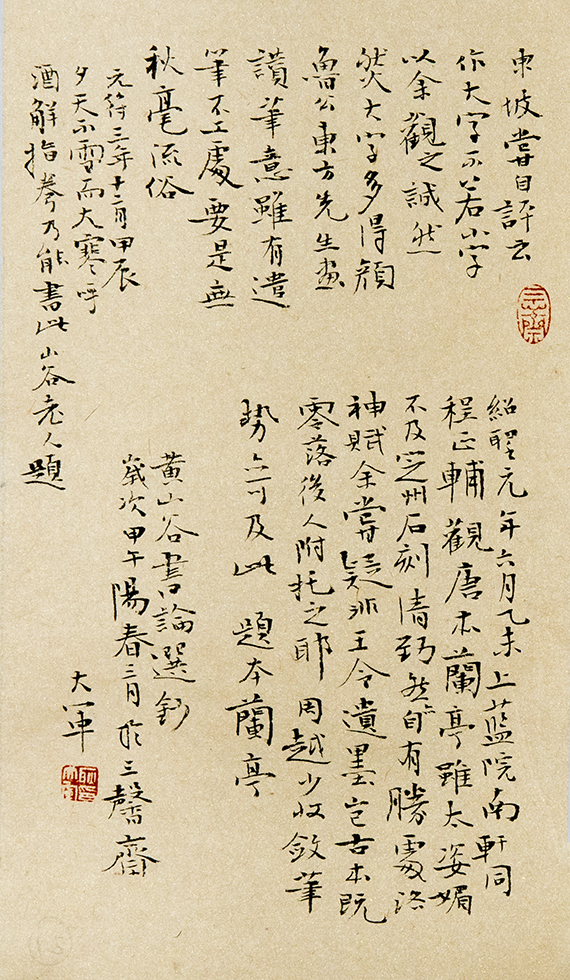 東坡嘗自評云
作大字不若小字
以余觀之誠然
然大字多得顏
魯公東方先生畫
讚筆意雖有遣
筆不工處要是無
秋毫流俗
元符三年十二月甲辰
夕天不雪而大寒呼
酒解指拳乃能書此山谷老人題
紹聖元年六月乙未上藍院南軒同
程正輔觀唐本蘭亭雖太姿媚
不及定州石刻清勁然亦自有勝處洛
神賦余嘗疑非王令遺墨豈古本既
零落後人附托之耶周越少收斂筆
勢亦可及此 題本蘭亭
黃山谷書論選鈔
歲次甲午陽春三月於三馨齋
大軍